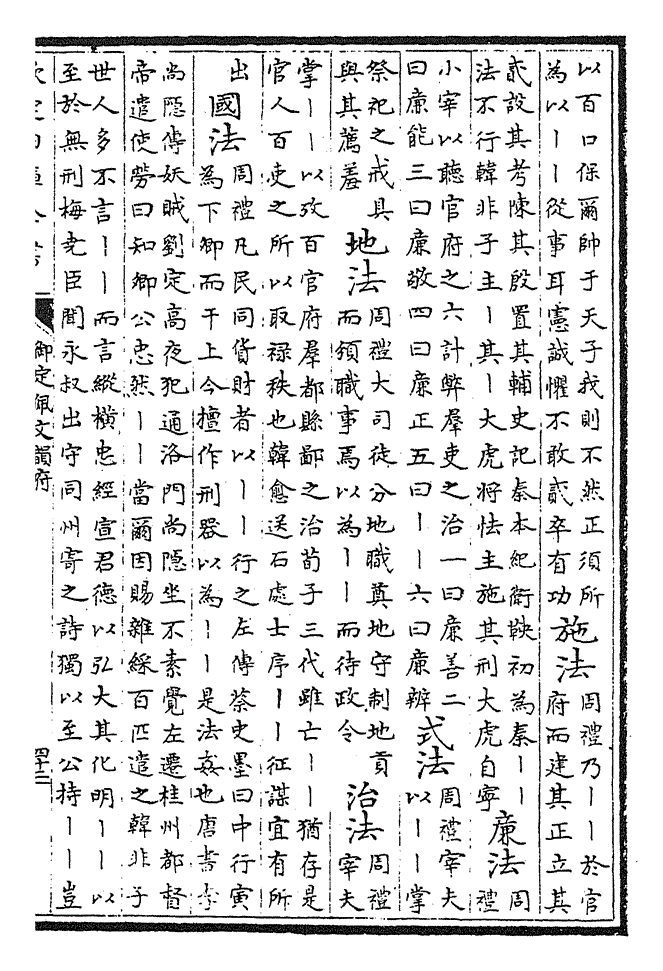 以百口保爾帥于天子我則不然正須所
為以丨丨從事耳憲誠懼不敢貳卒有功
施法
周禮乃丨丨於官
府而建其正立其
貳設其考陳其殷置其輔史記秦本紀衛鞅初為秦丨丨
法不行韓非子主丨其丨大虎將怯主施其刑大虎自寧
廉法
周
禮
小宰以聽官府之六計弊羣吏之治一曰廉善二
曰廉能三曰廉敬四曰廉正五曰丨丨六曰廉辨
式法
周禮宰夫
以丨丨掌
祭祀之戒具
與其薦羞
地法
周禮大司徒分地職奠地守制地貢
而頒職事焉以為丨丨而待政令
治法
周禮
宰夫
掌丨丨以攷百官府羣都縣鄙之治荀子三代雖亡丨丨猶存是
官人百吏之所以取祿秩也韓愈送石處士序丨丨征謀宜有所
出
國法
周禮凡民同貨財者以丨丨行之左傳蔡史墨曰中行寅
為下卿而干上令擅作刑器以為丨丨是法姦也唐書李
尚隱傳妖賊劉定高夜犯通洛門尚隱坐不素覺左遷桂州都督
帝遣使勞曰知卿公忠然丨丨當爾因賜雜綵百匹遣之韓非子
世人多不言丨丨而言縱橫忠經宣君德以弘大其化明丨丨以
至於無刑梅堯臣聞永叔出守同州寄之詩獨以至公持丨丨豈
欽定四庫全書
御定佩文韻府
四十二